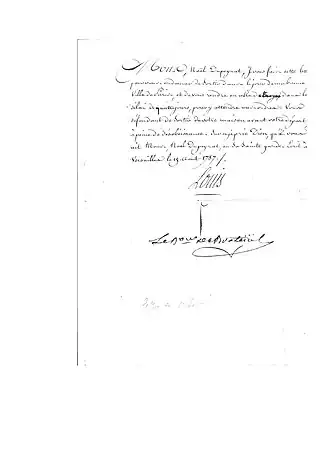 Mons. Noël Dupeyrat, Je vous fais cette
pour vous ordonner de sortir dans le jour de ma bonne
Ville de Paris, et de vous rendre en celle de Troyes dans le
délai de quatre jours, pour y attendre mes ordres. Vous
défendant de sortir de votre maison avant votre départ
à peine de désobéissance. Sur ce je prie Dieu, qu'il vous
ait Mons. Noël Dupeyrat, en sa Sainte garde. Écrit à
Versailles le 15 Août 1787./.
Louis
Le Bon de Breteüil